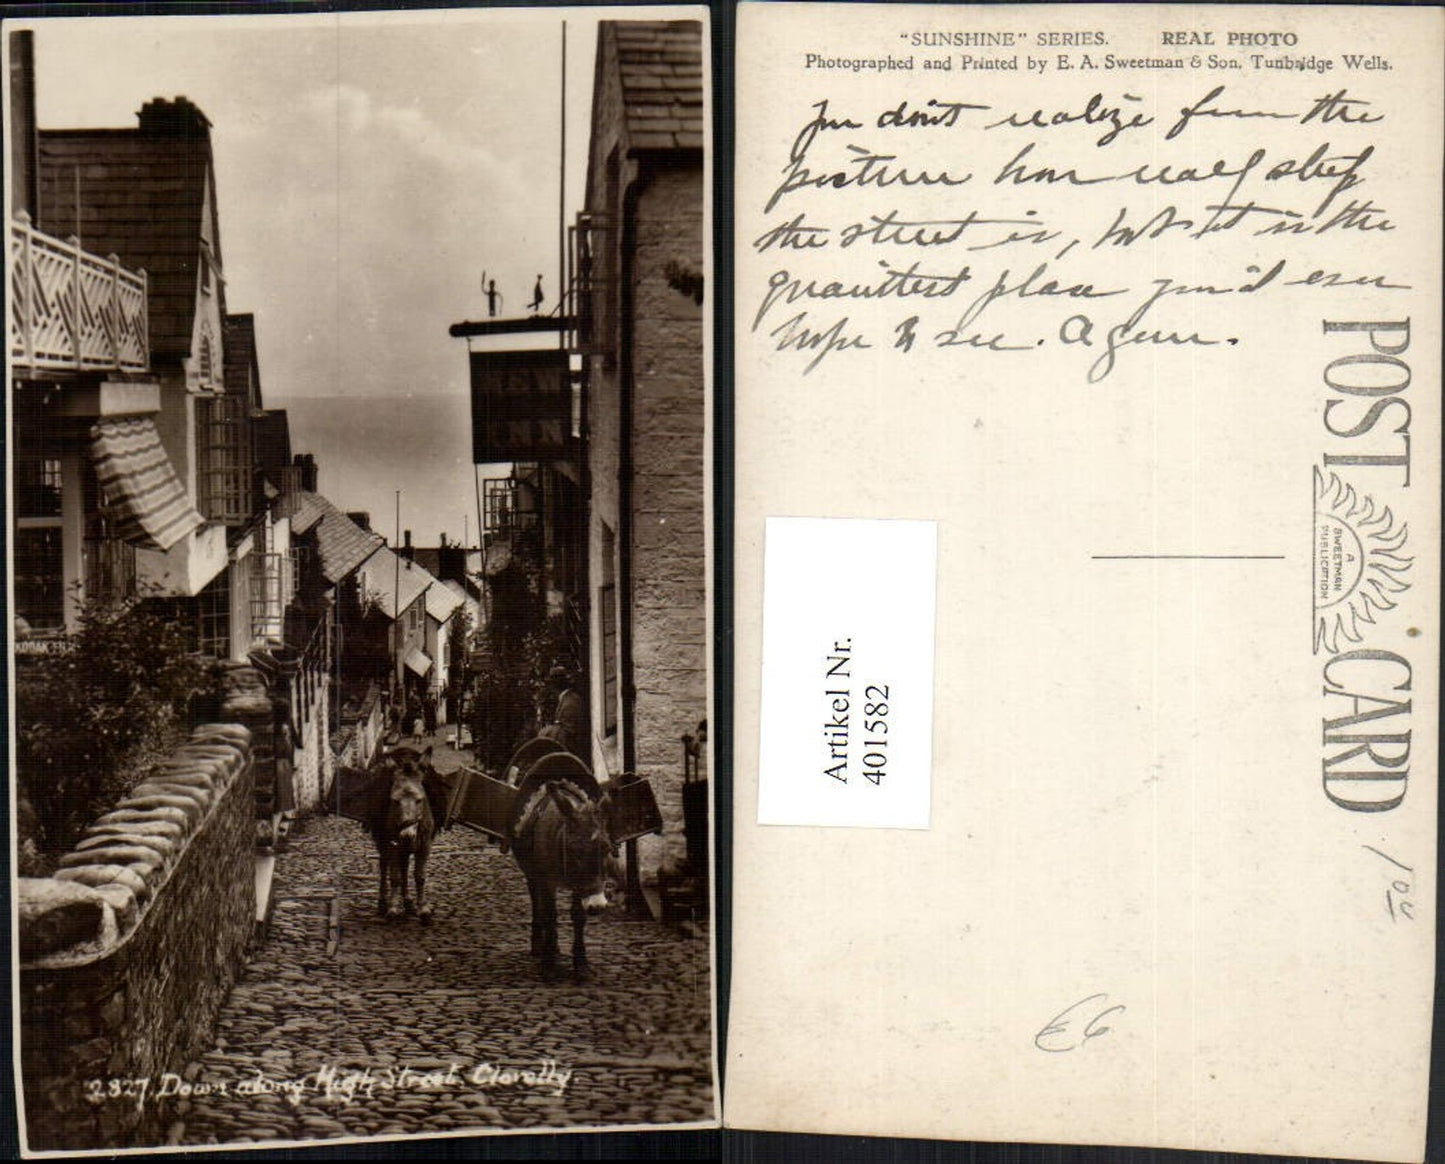 KODAK FILM
2827. Down along High Street, Clovelly.
"SUNSHINE" SERIES. REAL PHOTO
Photographed and Printed by E. A. Sweetman & Son, Tunbridge Wells.
You don't realize from the
picture how really steep
the street is, but it is the
quaintest place you'd ever
hope to see.
POST CARD
A
SWEETMAN
PUBLICATION
Artikel Nr.
401582
£6